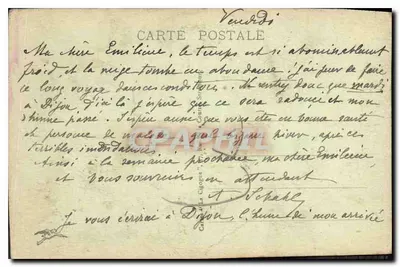 Vendredi
CARTE POSTALE
Ma chère Emilienne, le temps est si abominablement
froid et la neige tombe en abondance j'ai peur de faire
ce long voyage dans ces conditions. donc que mardi
à Dijon d'ici là j'espère que ce sera radouci et mon
rhume passé. J'espère aussi que vous êtes en bonne santé
et personne de malade hiver, après ces
terribles
Ainsi à la semaine prochaine, ma chère Emilienne
et bons souvenirs en attendant
Je vous écrirai à Dijon l'heure de mon arrivée